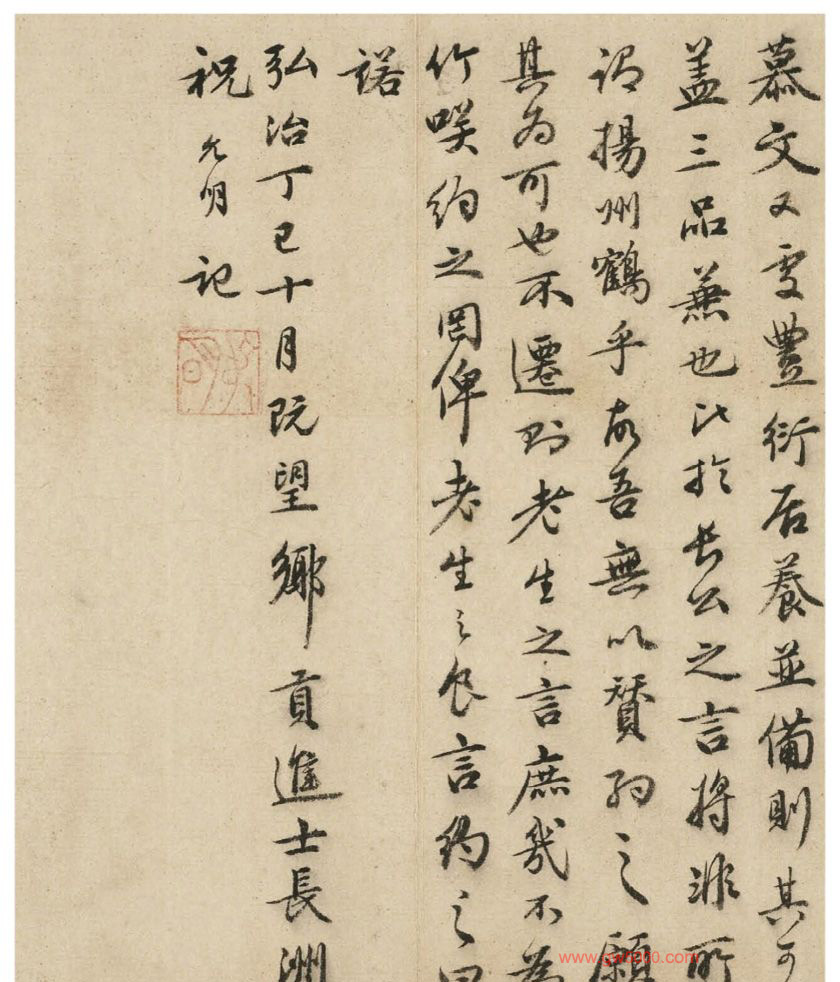 慕文又克豐衍居養並備則其可
蓋三品兼也比於長公之言將非所
謂揚州鶴乎故吾無以贊約之願
其為可也不遷則老生之言庶幾不為
竹咲約之罔俾老生之食言約之曰
諾
弘治丁巳十月既望鄉貢進士長洲
祝允明記